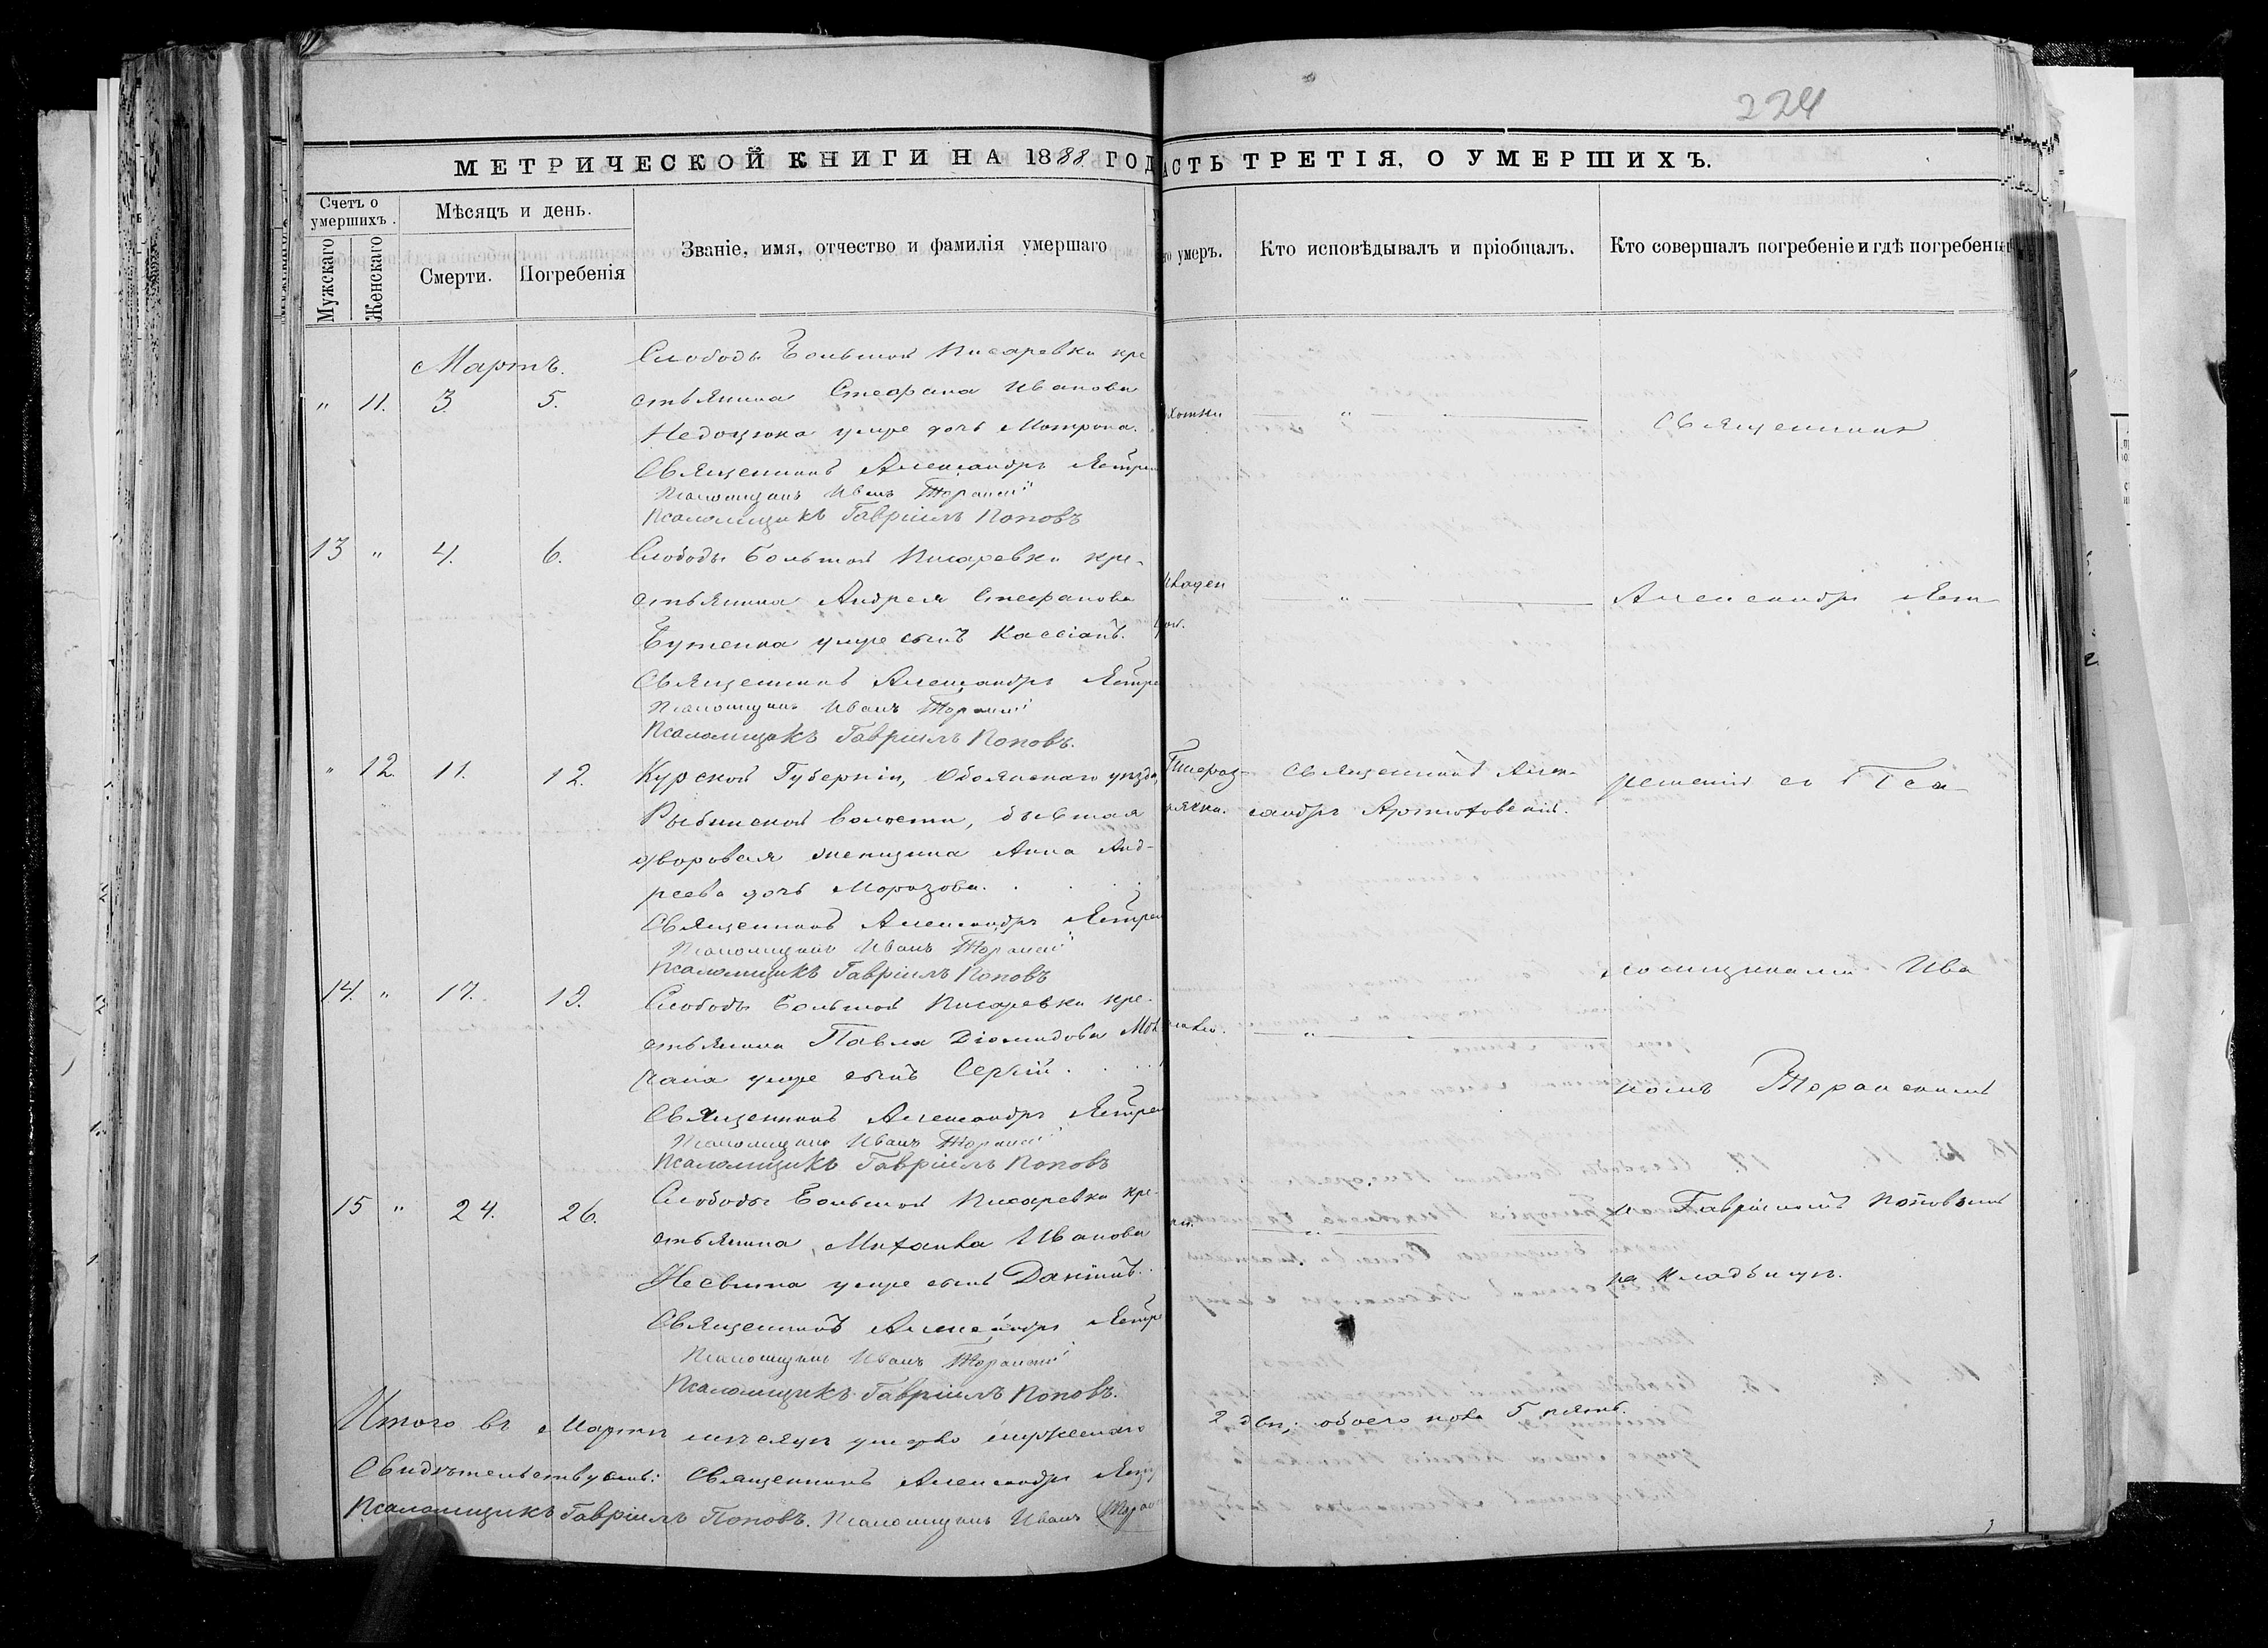 224
МЕТРИЧЕСКОЙ КНИГИ НА 1888 ГОД АСТЬ ТРЕТІЯ, О УМЕРШИХЪ.
Счетъ о умершихъ.
Мужскаго
Женскаго
Мѣсяцъ и день.
Смерти.
Погребенія
Званіе, имя, отчество и фамилія умершаго
умеръ.
Кто исповѣдывалъ и пріобщалъ.
Кто совершалъ погребеніе и гдѣ погребены
Мартъ.
" 11. 3. 5.
Слободы Большой Писаревки кре
стьянина Стефана Иванова
умре дочь Матрона.
Священникъ Александръ
Псаломщикъ Иванъ
Псаломщикъ Гавріилъ Поповъ
"
Священник
13 " 4. 6.
Слободы Большой Писаревки кре-
стьянина Андрея Стефанова
Бутенка умре сынъ Кассіанъ.
Священникъ Александръ
Псаломщикъ Иванъ
Псаломщикъ Гавріилъ Поповъ.
"
Александръ
" 12. 11. 12.
Курской Губерніи, Обоянскаго уѣзда,
Рыбинской волости, бывшая
дворовая женщина Анна Анд-
реева дочь Морозова.
Священникъ Александръ
Псаломщикъ Иванъ
Псаломщикъ Гавріилъ Поповъ
Священникъ Алек-
сандръ Артюховскій.
ремскій съ Пса
14. " 17. 19.
Слободы Большой Писаревки кре-
стьянина Павла Діомидова
умре сынъ Сергій.
Священникъ Александръ
Псаломщикъ Иванъ
Псаломщикъ Гавріилъ Поповъ
"
ломщиками Ива
номъ
15 " 24. 26.
Слободы Большой Писаревки кре-
стьянина Михаила Иванова
умре сынъ Даніилъ.
Священникъ Александръ
Псаломщикъ Иванъ
Псаломщикъ Гавріилъ Поповъ.
"
и Гавріиломъ Поповымъ
на кладбищѣ.
Итого въ Мартѣ мѣсяцѣ умерло мужескаго
2 двѣ; обоего пола 5 пять.
Свидѣтельствуемъ: Священникъ Александръ
Псаломщикъ Гавріилъ Поповъ. Псаломщикъ Иванъ